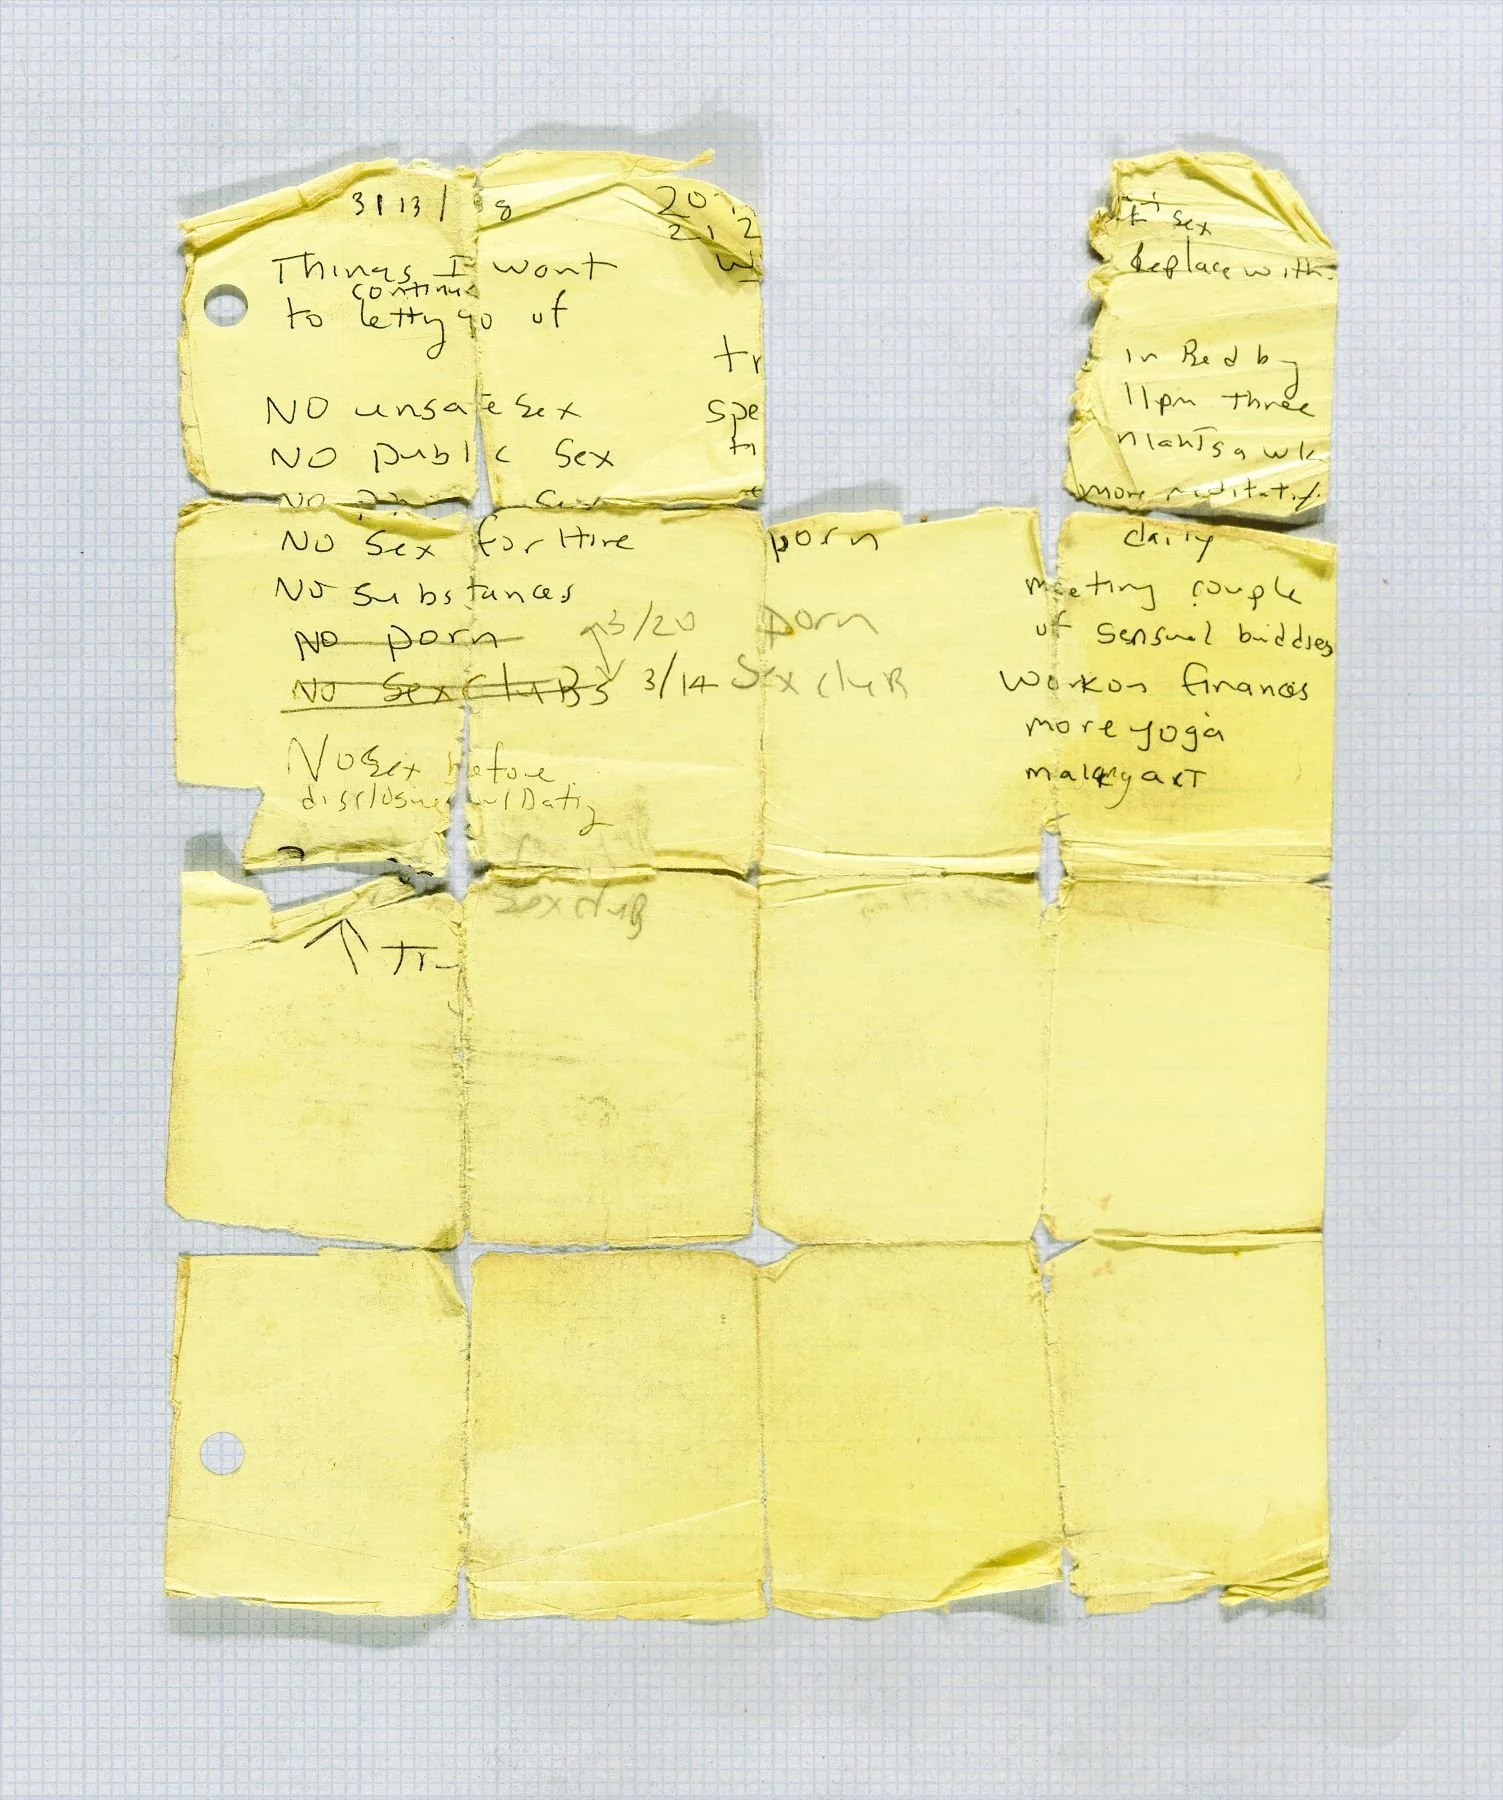 3/13/ 8
Things I wont
continue
to letting go of
NO unsafe sex
NO public sex
NO sex
NO sex for Hire
No substances
No porn
3/20
No sex cluBs
3/14
No sex before
disclosure w/ Dating
Tr
20
212
W
tr
spe
tn
porn
porn
Sex cluB
sex cluB
sex
Replace with
in Bed by
11pm three
nights a wk
more
daily
meeting couple
of sensual buddies
work on finances
more yoga
making art